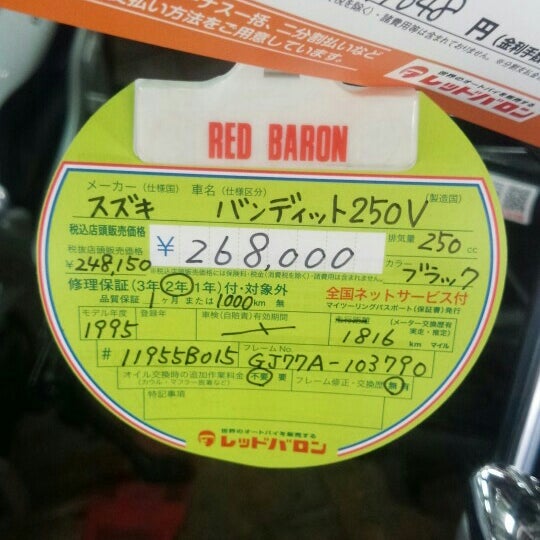 ナス一括、二分割払いなど
支払い方法をご用意しています。
円
世界のオートバイを販売する
レッドバロン
RED BARON
メーカー（仕様国） 車名（仕様区分） （製造国）
スズキ バンディット250V
税込店頭販売価格 ¥268,000 排気量 250 cc
税抜店頭販売価格 ¥248,150 カラー ブラック
修理保証（3年 2年 1年）付・対象外 全国ネットサービス付
品質保証 1ヶ月 または 1000km 無 マイツーリングパスポート（保証書）発行
モデル年度 登録年 車検（自賠責）有効期間 （メーター交換歴有 実走・推定）
1995 1816 km マイル
# 11955B015 フレームNo. GJ77A-103790
オイル交換時の追加作業料金 不要 要 フレーム修正・交換歴 無 有
（カウル・マフラー脱着など）
特記事項
世界のオートバイを販売する
レッドバロン